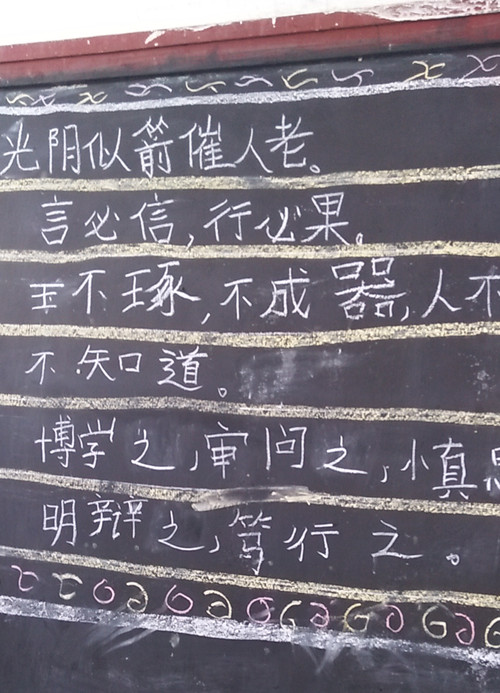 光阴似箭催人老。
言必信,行必果。
玉不琢,不成器,人不
不知道。
博学之,审问之,慎思
明辩之,笃行之。